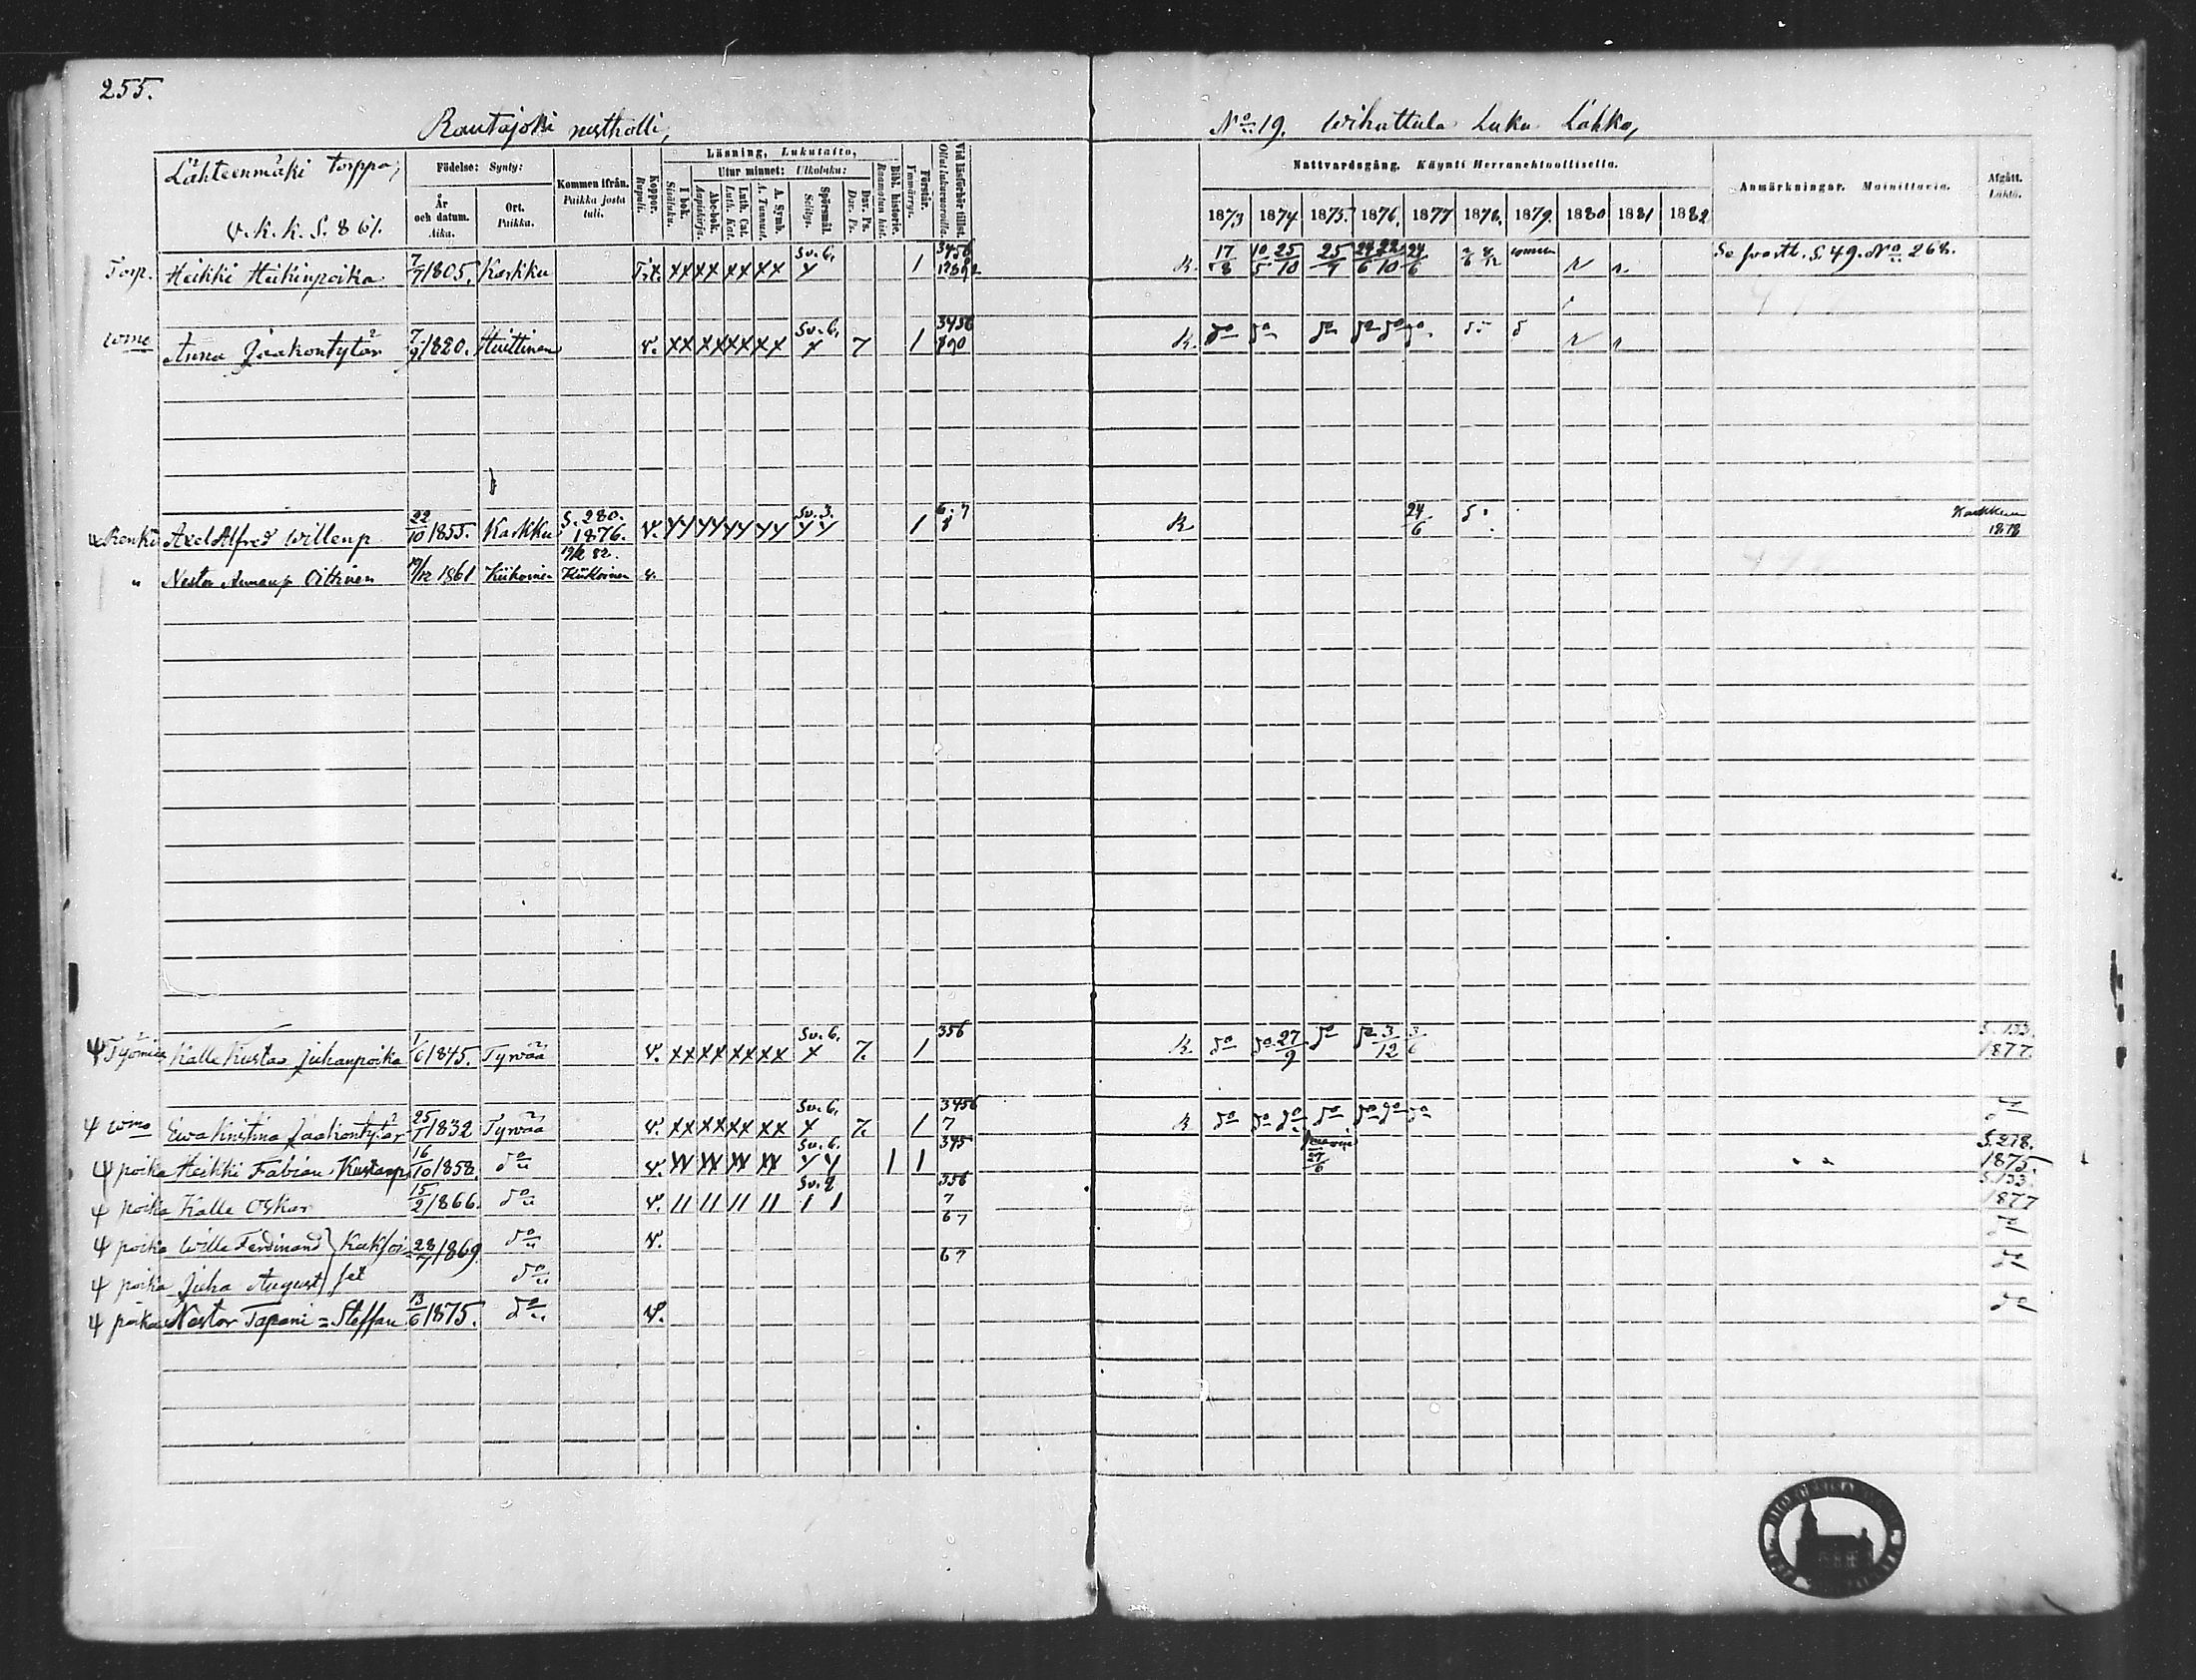 255.
Rautajoki rustholli,
No 19. Wihattula Luku Lahko,
Lähteenmäki torppa,
V. k. k. S. 861.
Födelse: Synty:
År och datum. Aika.
Ort. Paikka.
Kommen ifrån. Paikka josta tuli.
Koppor. Rupuli.
Läsning, Lukutaito,
I bok. Sisäluku.
Utur minnet: Ulkoluku:
Abc-bok. Aapiskirja.
Luth. Cat. Luth. Kat.
A. Symb. A. Tunnust.
Spörsmål. Selitys.
Dav. Ps. Dav. Ps.
Bibl. historie. Raamatun hist.
Förstår. Ymmärrys.
Vid läsförhör tillst. Ollut lukuvuoroilla.
Nattvardsgång. Käynti Herranehtoollisella.
1873 1874 1875. 1876. 1877 1878. 1879. 1880 1881 1882
Anmärkningar. Mainittavia.
Afgått. Lähtö.
Torp. Heikki Heikinpoika 7/7 1805. Karkku xx xx xx xx Sv. 6. x 1 3456 R. 17/8 10/5 25/10 25/4 24/6 22/10 24/6 Se frostl. S. 49. No 268.
Anna Jaakontytär 7/9 1820. Huittinen v. xx xx xx xx Sv. 6. x 7 1 3456 R. do do do do do
Renki Axel Alfred Willenp. 22/10 1855. Karkku S. 280. 1876. v. Sv. 3. 1 6. 7 8 R 24/6 Karkkuu 1878
" Nestor 19/12 1861 Kiikoinen 19/12 82. Kiikoinen v.
Kalle Kustaa Juhanpoika 1/6 1845. Tyrvää v. xx xx xx xx Sv. 6. x 7. 1 356 R do do 27/9 do do 3/12 3/6 S. 133. 1877.
Ewa Kristina Jaakontytär 25/1 1832 Tyrvää v. xx xx xx xx Sv. 6. x 7. 1 3456 7 R do do do do do do do do
poika Heikki Fabian Kustaap. 16/10 1858. do v. Sv. 6. 1 1 345 27/6 S. 278. 1875.
poika Kalle Oskar 15/2 1866. do v. 11 11 11 11 Sv. 2 1 1 356 7 S. 133. 1877
poika Wille Ferdinand } Kaksoi- 28/7 1869. do v. 67 do
poika Juha August } set do 67 do
poika Nestor Tapani = Steffan 13/6 1875. do v. do